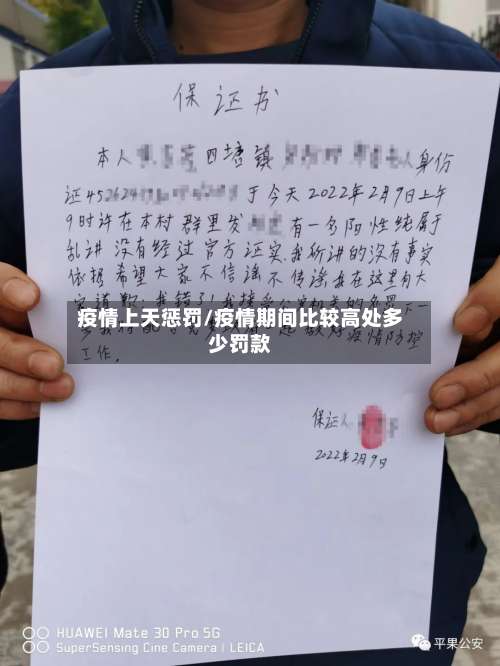 保证书
本人 四塘镇 人身份
证452624 于今天2022年2月9日上午
9时许在本村群里发 有一名阳性纯属
乱讲没有经过官方证实,我所讲的没有事实
依据希望大家不信谣不传谣我在这里向大
疫情上天惩罚/疫情期间比较高处多
少罚款
疫情防控
工作。
保证人
2022年2月9日
HUAWEI Mate 30 Pro 5G
SuperSensing Cine Camera | LEICA
平果公安